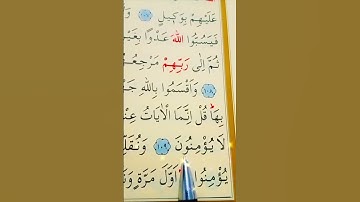 عَلَيْهِمْ بِوَكٖيلٍ ﴿١٠٧﴾
فَيَسُبُّوا اللّٰهَ عَدْوًا بِغَيْرِ
ثُمَّ اِلٰى رَبِّهِمْ مَرْجِعُ
﴿١٠٨﴾ وَاَقْسَمُوا بِاللّٰهِ جَ
بِهَاؕ قُلْ اِنَّمَا الْاٰيَاتُ عِنْ
لَا يُؤْمِنُونَ ﴿١٠٩﴾ وَنُقَلِّ
يُؤْمِنُوا اَوَّلَ مَرَّةٍ وَنَ